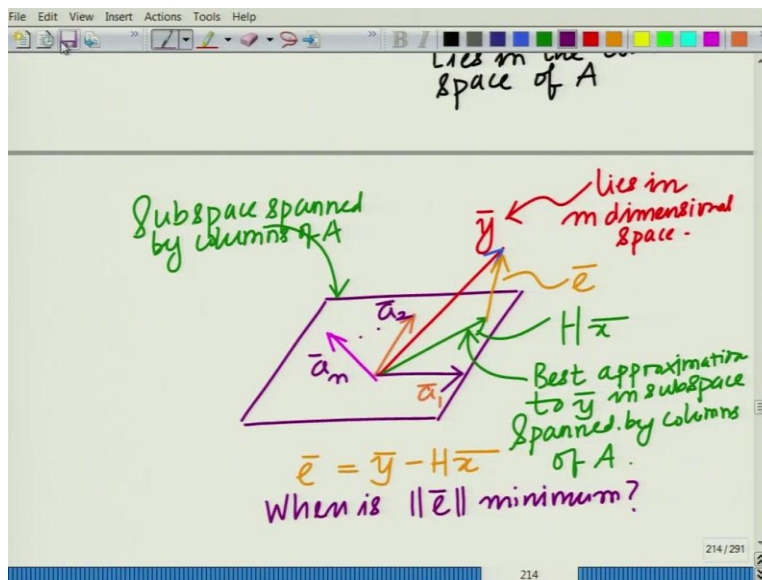 File Edit View Insert Actions Tools Help
B I
Lies in the
space of A
Subspace spanned
by columns of A
lies in
m dimensional
space.
y̅
e̅
a̅₂
a̅ₙ
a̅₁
Hx̅
Best approximation
to y̅ in subspace
Spanned by columns
of A.
e̅ = y̅ - Hx̅
When is ||e̅|| minimum?
214 / 291
214